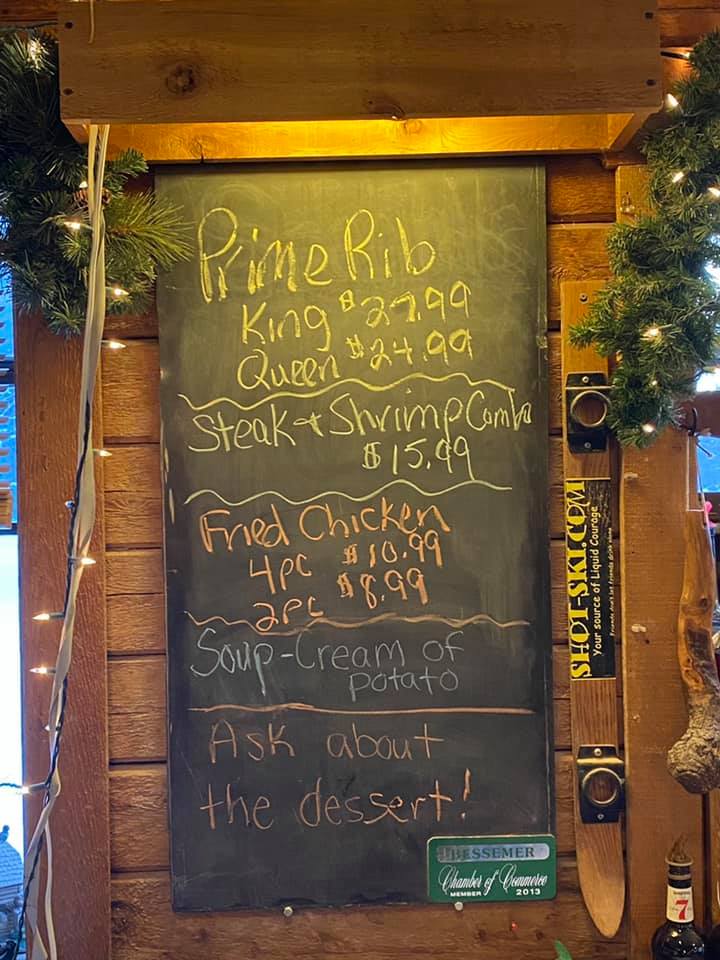 Prime Rib
King $27.99
Queen $24.99
Steak & Shrimp Combo
$15.99
Fried Chicken
4pc $10.99
2pc $8.99
Soup-Cream of
potato
Ask about
the dessert!
BESSEMER
Chamber of Commerce
MEMBER 2013
SHOT-SKI.COM
Your source of Liquid Courage
Friends don't let friends drink alone
7